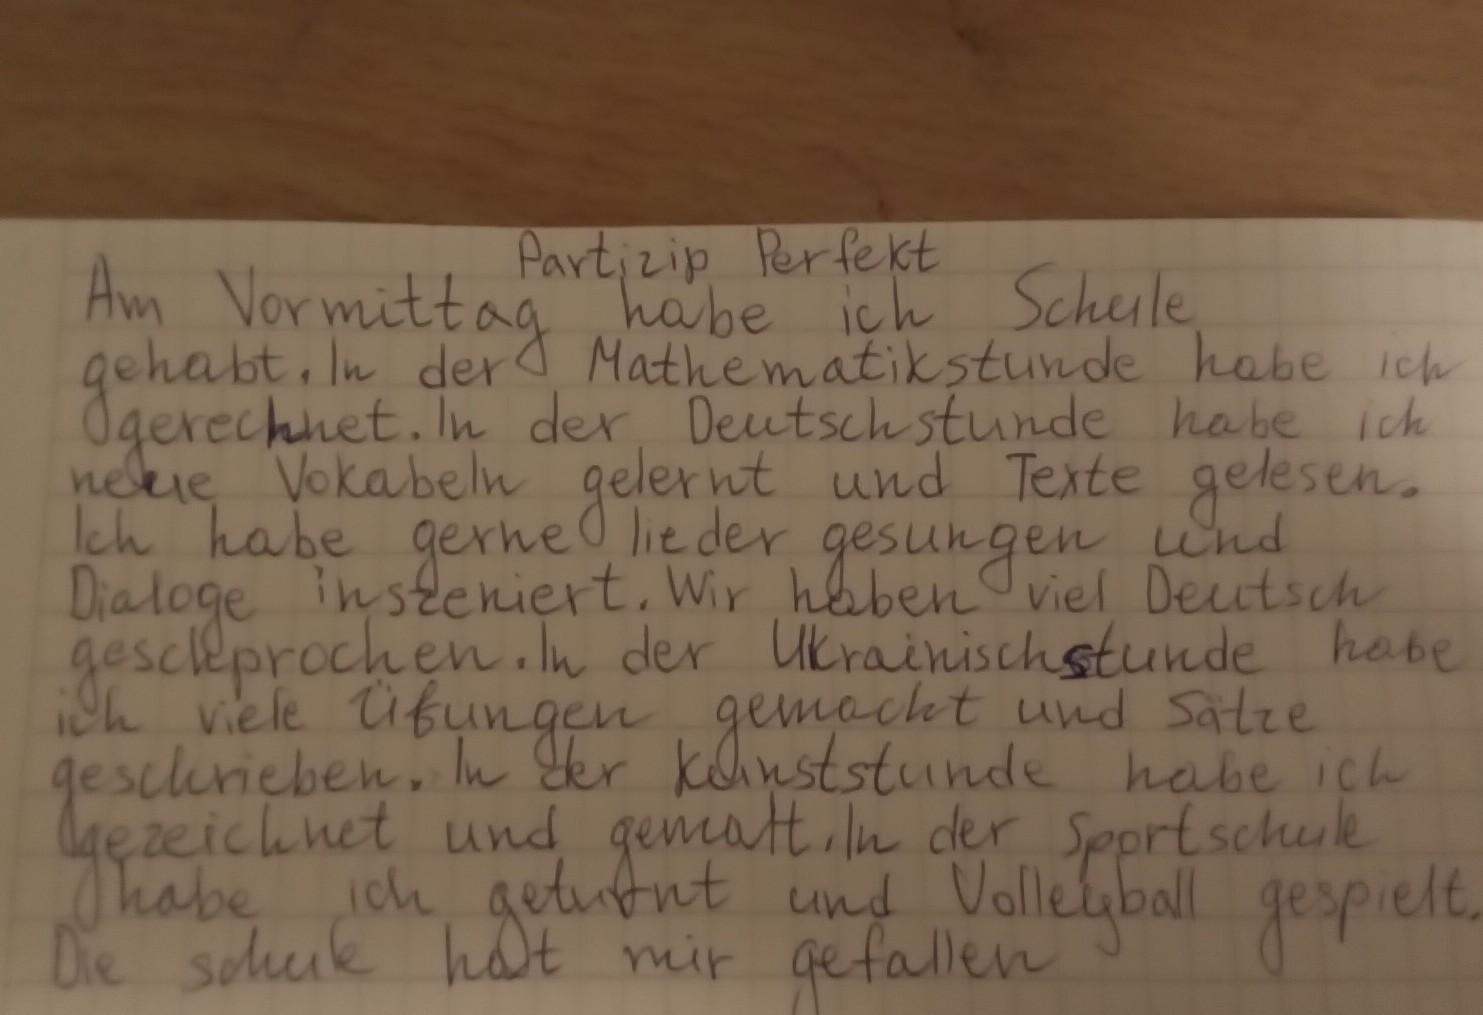 Partizip Perfekt
Am Vormittag habe ich Schule
gehabt. In der Mathematikstunde habe ich
gerechnet. In der Deutschstunde habe ich
neue Vokabeln gelernt und Texte gelesen.
Ich habe gerne lieder gesungen und
Dialoge inszeniert. Wir haben viel Deutsch
In der Ukrainischstunde habe
ich viele Übungen gemacht und Sätze
geschrieben. In der Kunststunde habe ich
gezeichnet und gemalt. In der Sportschule
habe ich geturnt und Volleyball gespielt.
Die schule hat mir gefallen